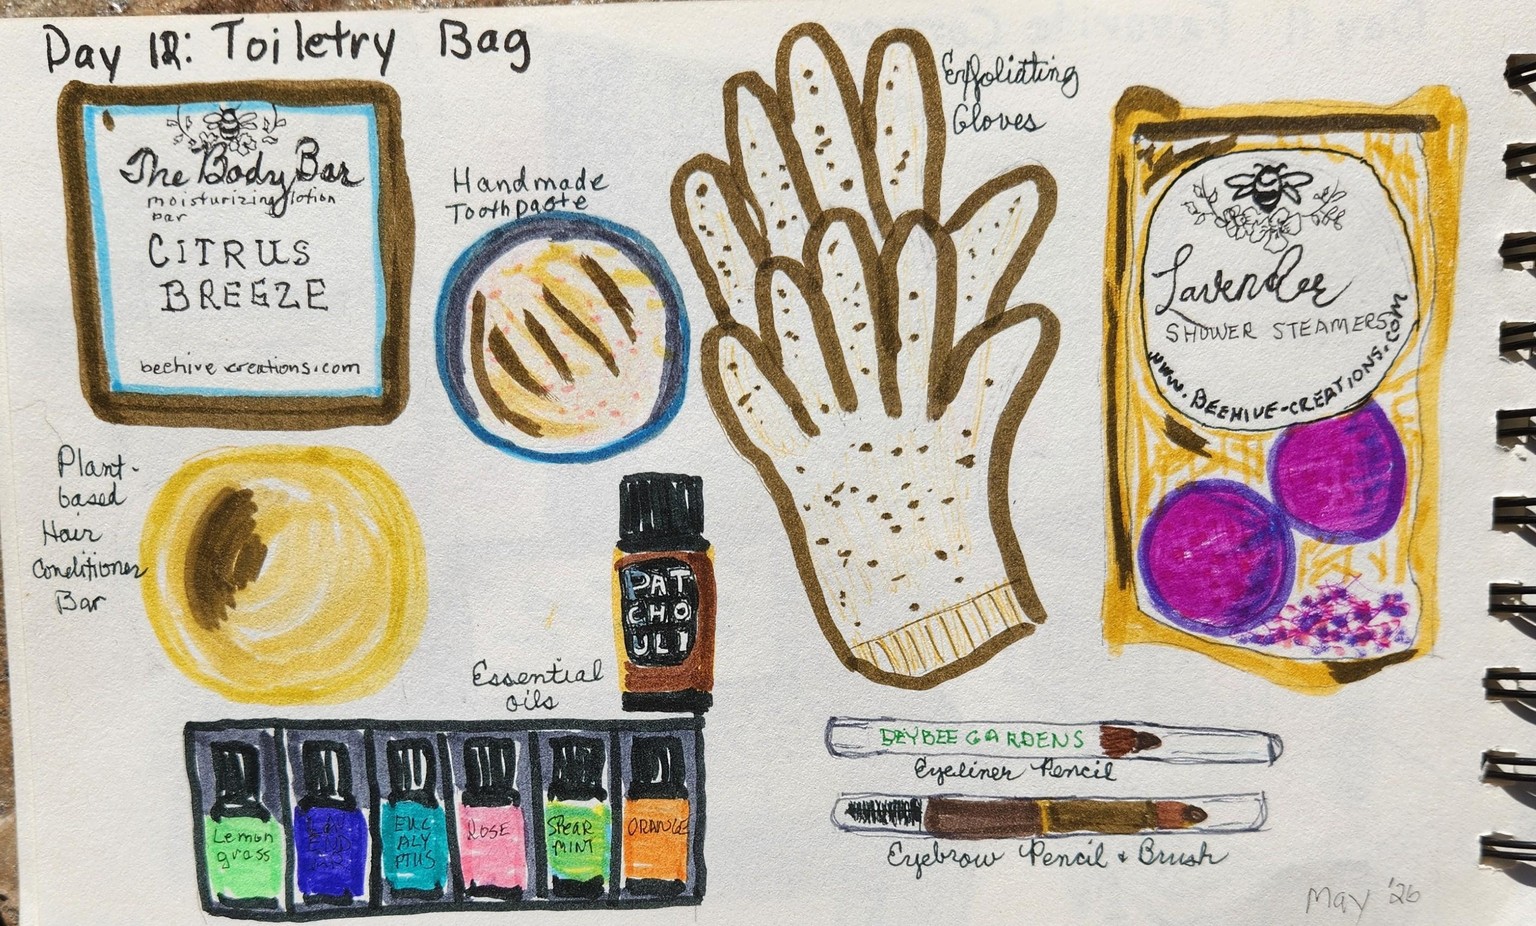 Day 12: Toiletry Bag
The Body Bar
moisturizing lotion
bar
CITRUS
BREEZE
beehive creations.com
Handmade
Toothpaste
Exfoliating
Gloves
Lavender
SHOWER STEAMERS
www.BEEHIVE-CREATIONS.com
Plant-
based
Hair
Conditioner
Bar
PAT
CHO
ULI
Essential
oils
Lemon
grass
LAV
END
AR
EUC
ALY
PTUS
ROSE
SPEAR
MINT
ORANGE
BEYBEE GARDENS
Eyeliner Pencil
Eyebrow Pencil + Brush
May '26